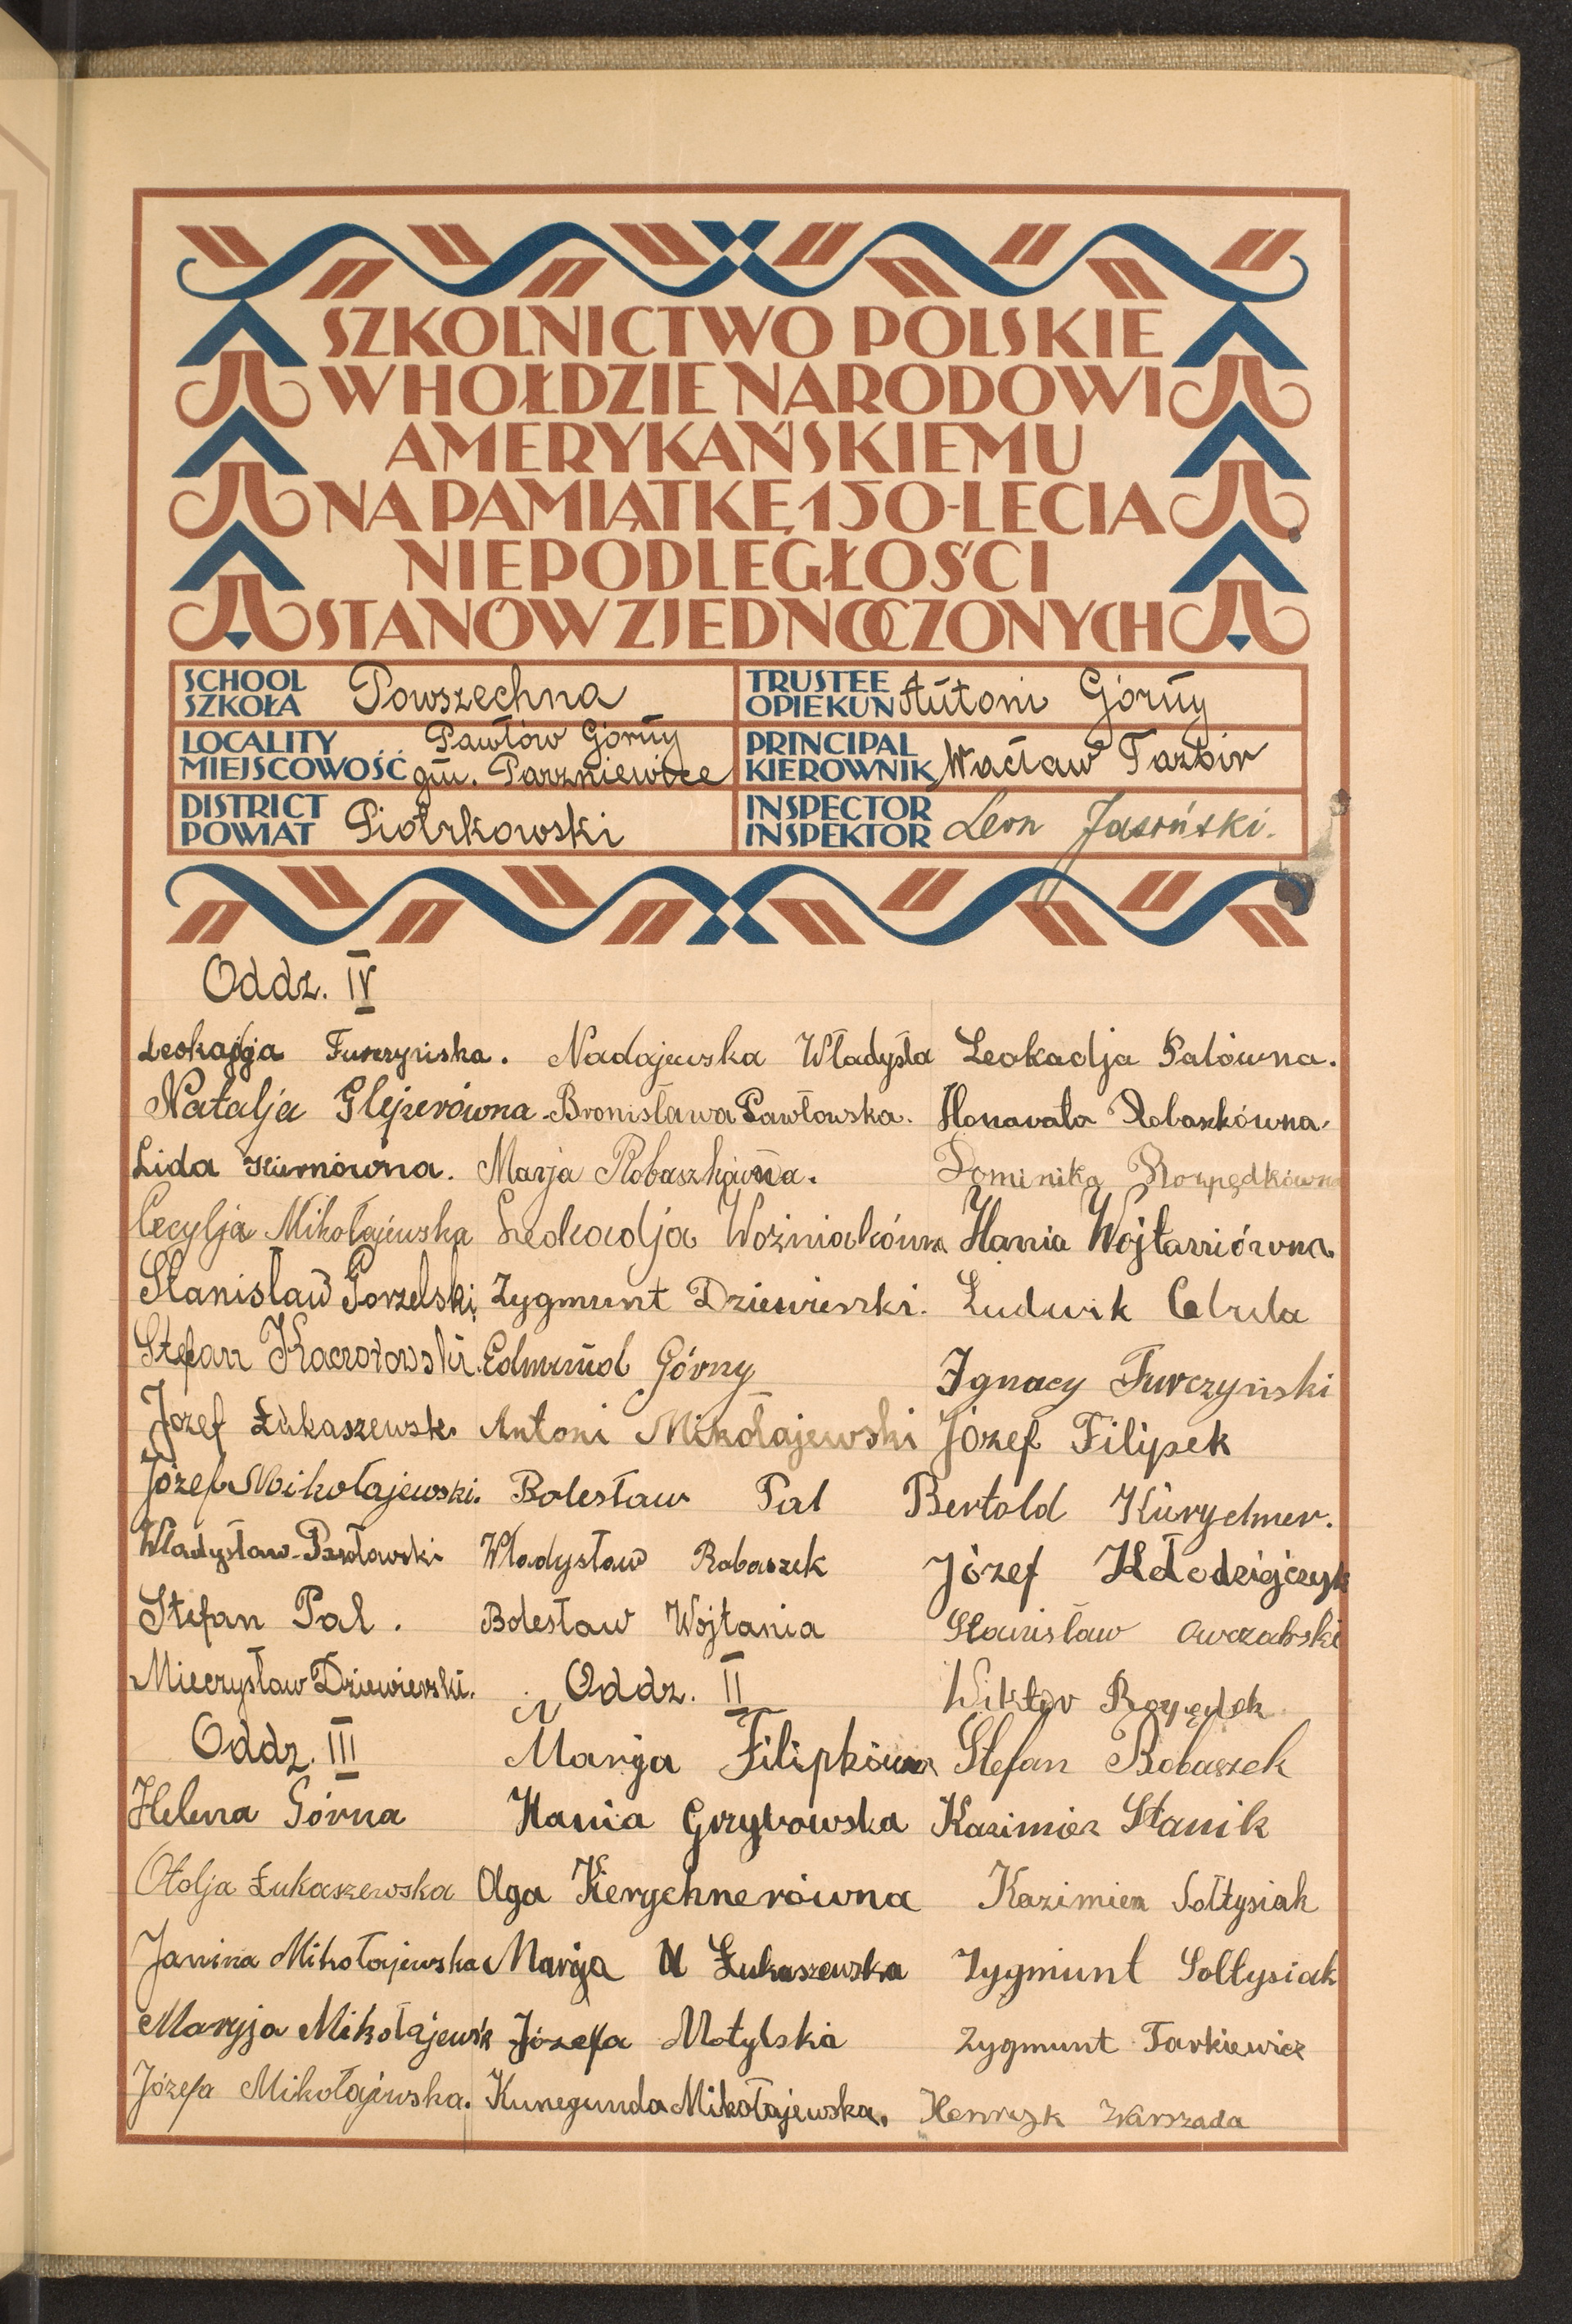 SZKOLNICTWO POLSKIE
W HOŁDZIE NARODOWI
AMERYKAŃSKIEMU
NA PAMIĄTKĘ 150-LECIA
NIEPODLEGŁOŚCI
STANÓW ZJEDNOCZONYCH
SCHOOL
SZKOŁA
Powszechna
TRUSTEE
OPIEKUN
Antoni Górny
LOCALITY
MIEJSCOWOŚĆ
Pawłów Górny
gm. Parzniewice
PRINCIPAL
KIEROWNIK
Wacław Tazbir
DISTRICT
POWIAT
Piotrkowski
INSPECTOR
INSPEKTOR
Leon Jasiński.
Oddz. IV
Leokadja Furczyńska.
Natalja Glejzerówna
Lida
Cecylja Mikołajewska
Stanisław Gorzelski
Stefan Kaczorowski.
Józef Łukaszewsk
Józef Mikołajewski.
Władysław Pawłowski
Stefan Pal.
Mieczysław Dziewierski.
Oddz. III
Helena Górna
Otolja Łukaszewska
Janina Mikołajewska
Maryja Mikołajewsk
Józefa Mikołajewska.
Nadajewska Władysła
Bronisława Pawłowska.
Marja Robaszkówna.
Leokadja Woźniakówna
Zygmunt Dziewierski.
Edmund Górny
Antoni Mikołajewski
Bolesław Pal
Władysław Robaszek
Bolesław Wojtania
Oddz. II
Marja Filipkówna
Hania Grzybowska
Olga Kierychnerówna
Marja Łukaszewska
Józefa Motylska
Kunegunda Mikołajewska.
Leokadja Palówna.
Honorata Robaszkówna.
Dominika Rozpędkówn
Hania Wojtaniówna
Ludwik Cebula
Ignacy Furczyński
Józef Filipek
Bertold Kürychner.
Józef Kołodziejczyk
Stanisław Owczarski
Wiktor Rozpędek
Stefan Robaszek
Kazimierz Stanik
Kazimierz Sołtysiak
Zygmunt Sołtysiak
Zygmunt Tarkiewicz
Henryk Warszada